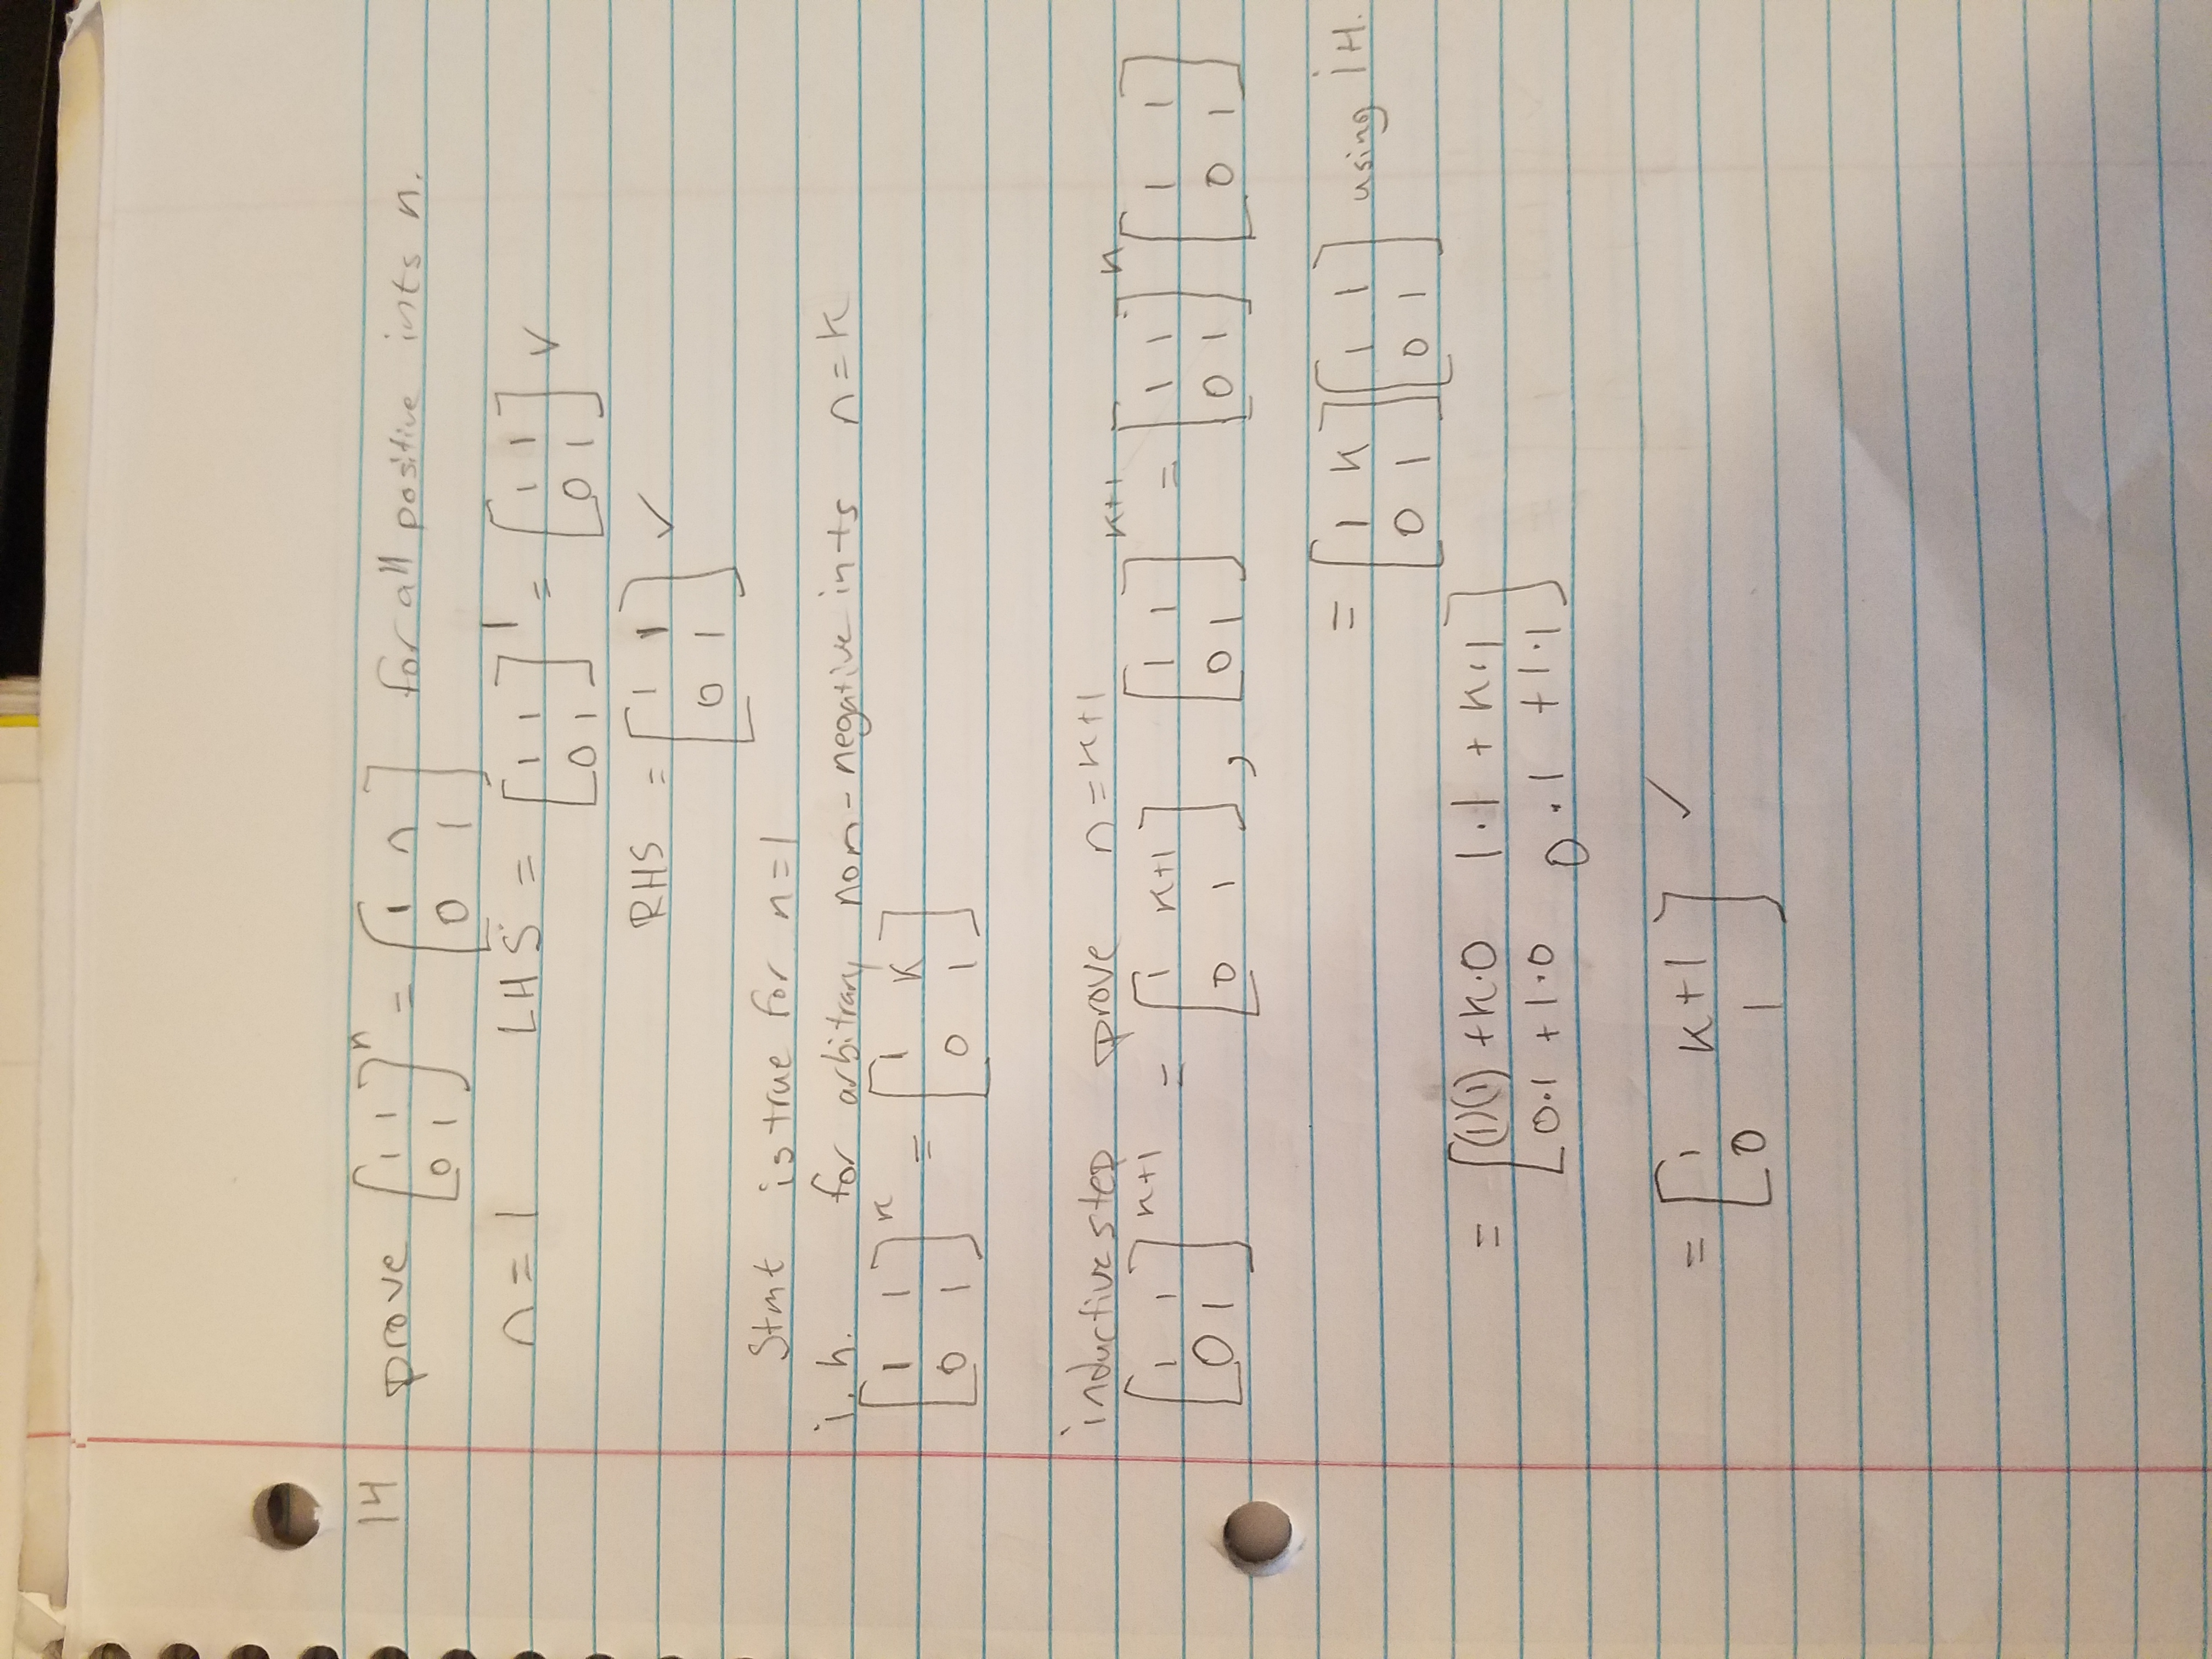 14 prove [1 1 0 1]^n = [1 n 0 1] for all positive ints n.
n = 1 LHS = [1 1 0 1]^1 = [1 1 0 1] ✓
RHS = [1 1 0 1] ✓
Stmt is true for n=1
i.h. for arbitrary non-negative ints n=k
[1 1 0 1]^k = [1 k 0 1]
inductive step prove n=k+1
[1 1 0 1]^k+1 = [1 k+1 0 1], [1 1 0 1]^k+1 = [1 1 0 1]^k [1 1 0 1]
= [1 k 0 1][1 1 0 1] using iH.
= [(1)(1) +k·0 1·1 + k·1
0·1 +1·0 0·1 +1·1]
= [1 k+1 0 1] ✓